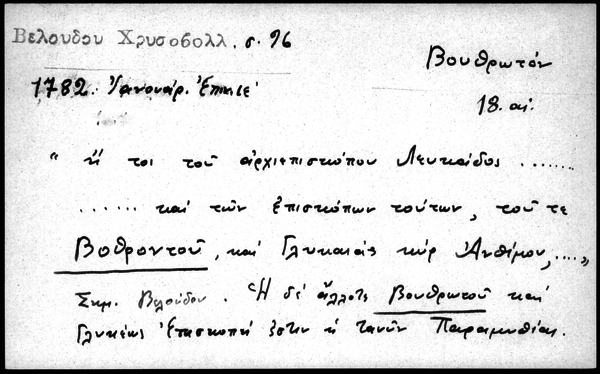 Βελουδου Χρυσοβολλ. σ. 96
Βουθρωτόν
1782. Ἰανουάρ. Ἐπινέ
18. αἰ.
“ ἤ τοι τοῦ ἀρχιεπισκόπου Λευκάδος ........
...... καὶ τῶν ἐπισκόπων τούτων, τοῦ τε
Βοθροντοῦ, καὶ Γλυκαιάς κύρ Ἀνθίμου, ....”
Σημ. Βελούδου. Ἡ δέ ἄλλοτε Βουθρωτοῦ καί
Γλυκέως Ἐπισκοπή ἐστιν ἡ τανῦν Παραμυθίας.